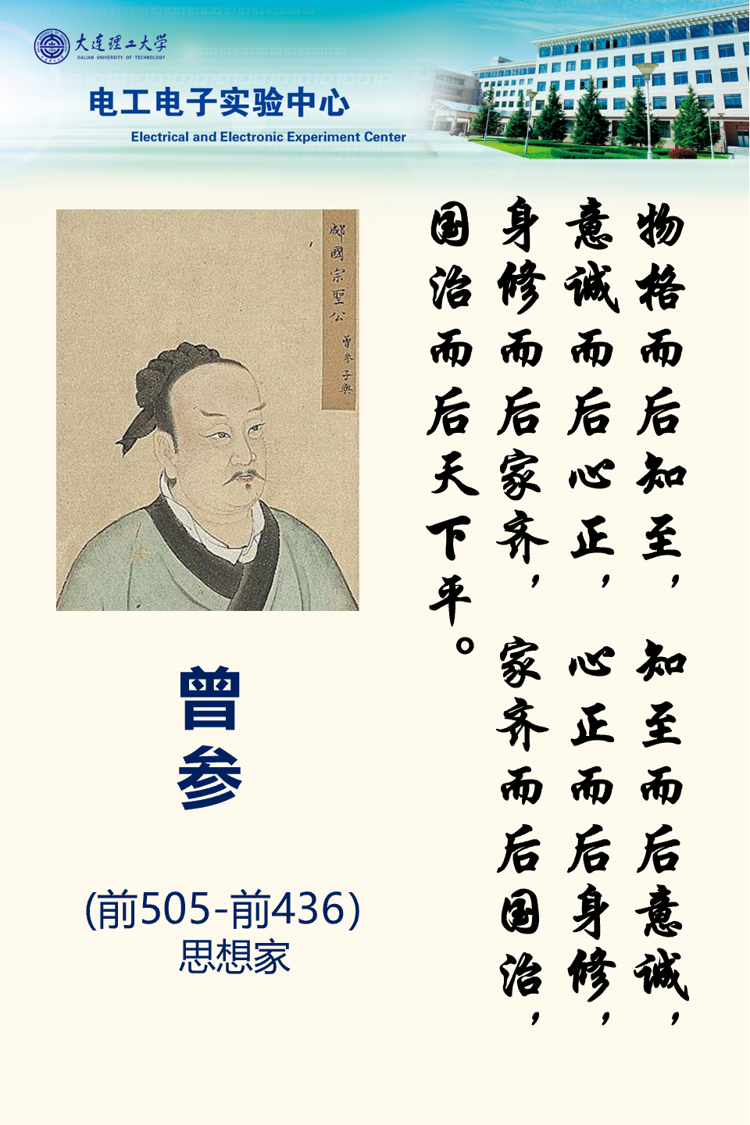 大连理工大学
DALIAN UNIVERSITY OF TECHNOLOGY
电工电子实验中心
Electrical and Electronic Experiment Center
物格而后知至，知至而后意诚，
意诚而后心正，心正而后身修，
身修而后家齐，家齐而后国治，
国治而后天下平。
郕國宗聖公 曾參子輿
曾参
(前505-前436）
思想家